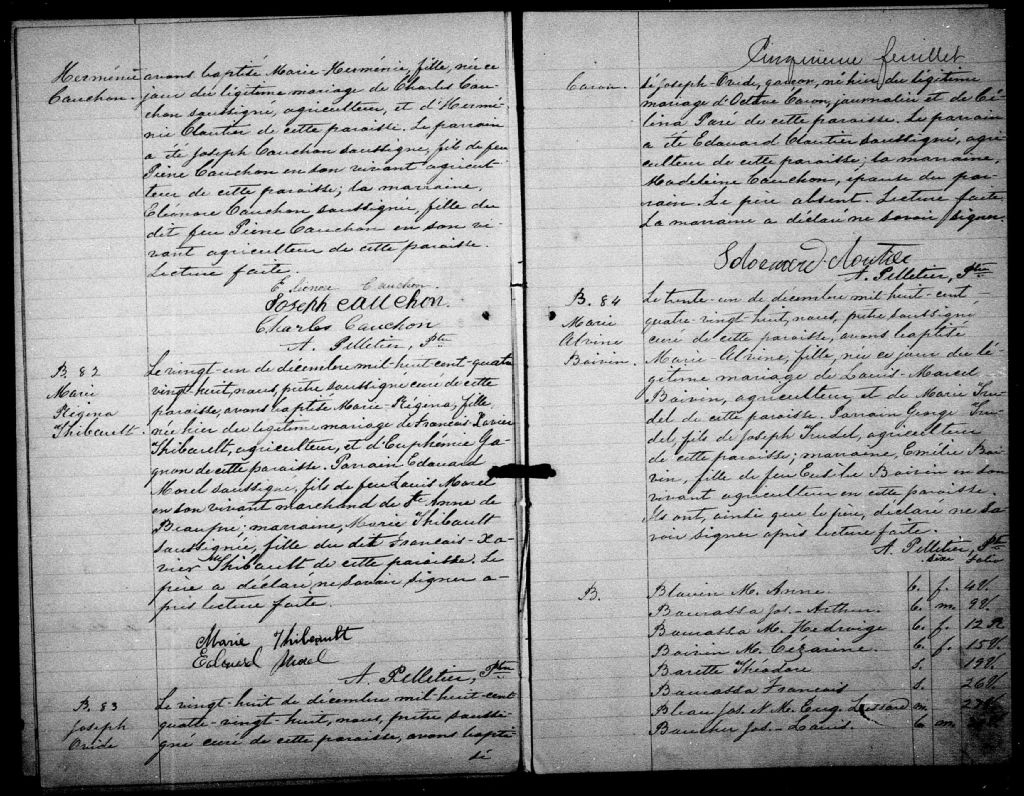 Herménie avons baptisé Marie Herménie, fille, née ce
Cauchon. jour du légitime mariage de Charles Cau-
chon soussigné, agriculteur, et d'Hermé-
nie Cloutier de cette paroisse. Le parrain
a été Joseph Cauchon soussigné, fils de feu
Pierre Cauchon en son vivant agricul-
teur de cette paroisse; la marraine,
Eléonore Cauchon soussignée, fille du
dit feu Pierre Cauchon en son vi-
vant agriculteur de cette paroisse.
Lecture faite.
Eléonore Cauchon.
Joseph Cauchon.
Charles Cauchon
A. Pelletier, Ptre
B. 82 Le vingt-un de décembre mil-huit-cent-quatre
Marie vingt-huit, nous, prêtre soussigné curé de cette
Régina paroisse, avons baptisé Marie-Régina, fille,
Thibault. née hier du légitime mariage de François-Xavier
Thibault, agriculteur, et d'Euphémie Ga-
gnon de cette paroisse. Parrain Edouard
Morel soussigné, fils de feu Louis Morel
en son vivant marchand de Ste Anne de
Beaupré; marraine, Marie Thibault
soussignée, fille du dit François-Xa-
vier Thibault de cette paroisse. Le
père a déclaré ne savoir signer a-
près lecture faite.
Marie Thibault
Edouard Morel
A. Pelletier, Ptre
B. 83 Le vingt-huit de décembre mil-huit-cent
Joseph quatre-vingt-huit, nous, prêtre soussi-
Ovide gné curé de cette paroisse, avons bapti-
sé
Cinquième feuillet
Caron. sé Joseph-Ovide, garçon, né hier du légitime
mariage d'Octave Caron, journalier et de Cé-
lina Paré de cette paroisse. Le parrain
a été Edouard Cloutier soussigné, agri-
culteur de cette paroisse; la marraine,
Madeleine Cauchon, épouse du par-
rain. Le père absent. Lecture faite
La marraine a déclaré ne savoir signer
Edouard Cloutier
A. Pelletier, Ptre
B. 84 Le trente-un de décembre mil-huit-cent
Marie quatre-vingt-huit, nous, prêtre soussigné
Alvine curé de cette paroisse, avons baptisé
Boivin. Marie-Alvine, fille, née ce jour du lé-
gitime mariage de Louis-Marcel
Boivin, agriculteur, et de Marie Tru-
del de cette paroisse. Parrain George Tru-
del, fils de Joseph Trudel, agriculteur
de cette paroisse; marraine, Emélie Boi-
vin, fille de feu Eusèbe Boivin en son
vivant agriculteur en cette paroisse.
Ils ont, ainsi que le père, déclaré ne sa-
voir signer après lecture faite.
A. Pelletier, Ptre
sexe folio
B. Blouin M. Anne. b. f. 4V.
Bourassa Jos.-Arthur. b. m. 9V.
Bourassa M. Hedwige b. f. 12R
Boivin M. Cézarine. b. f. 15V.
Barette Théodore s. 19V.
Bourassa François s. 26V.
Bleau Jos. N. M. Eug. Lessard m.
Boucher Jos.-Louis. b. m.